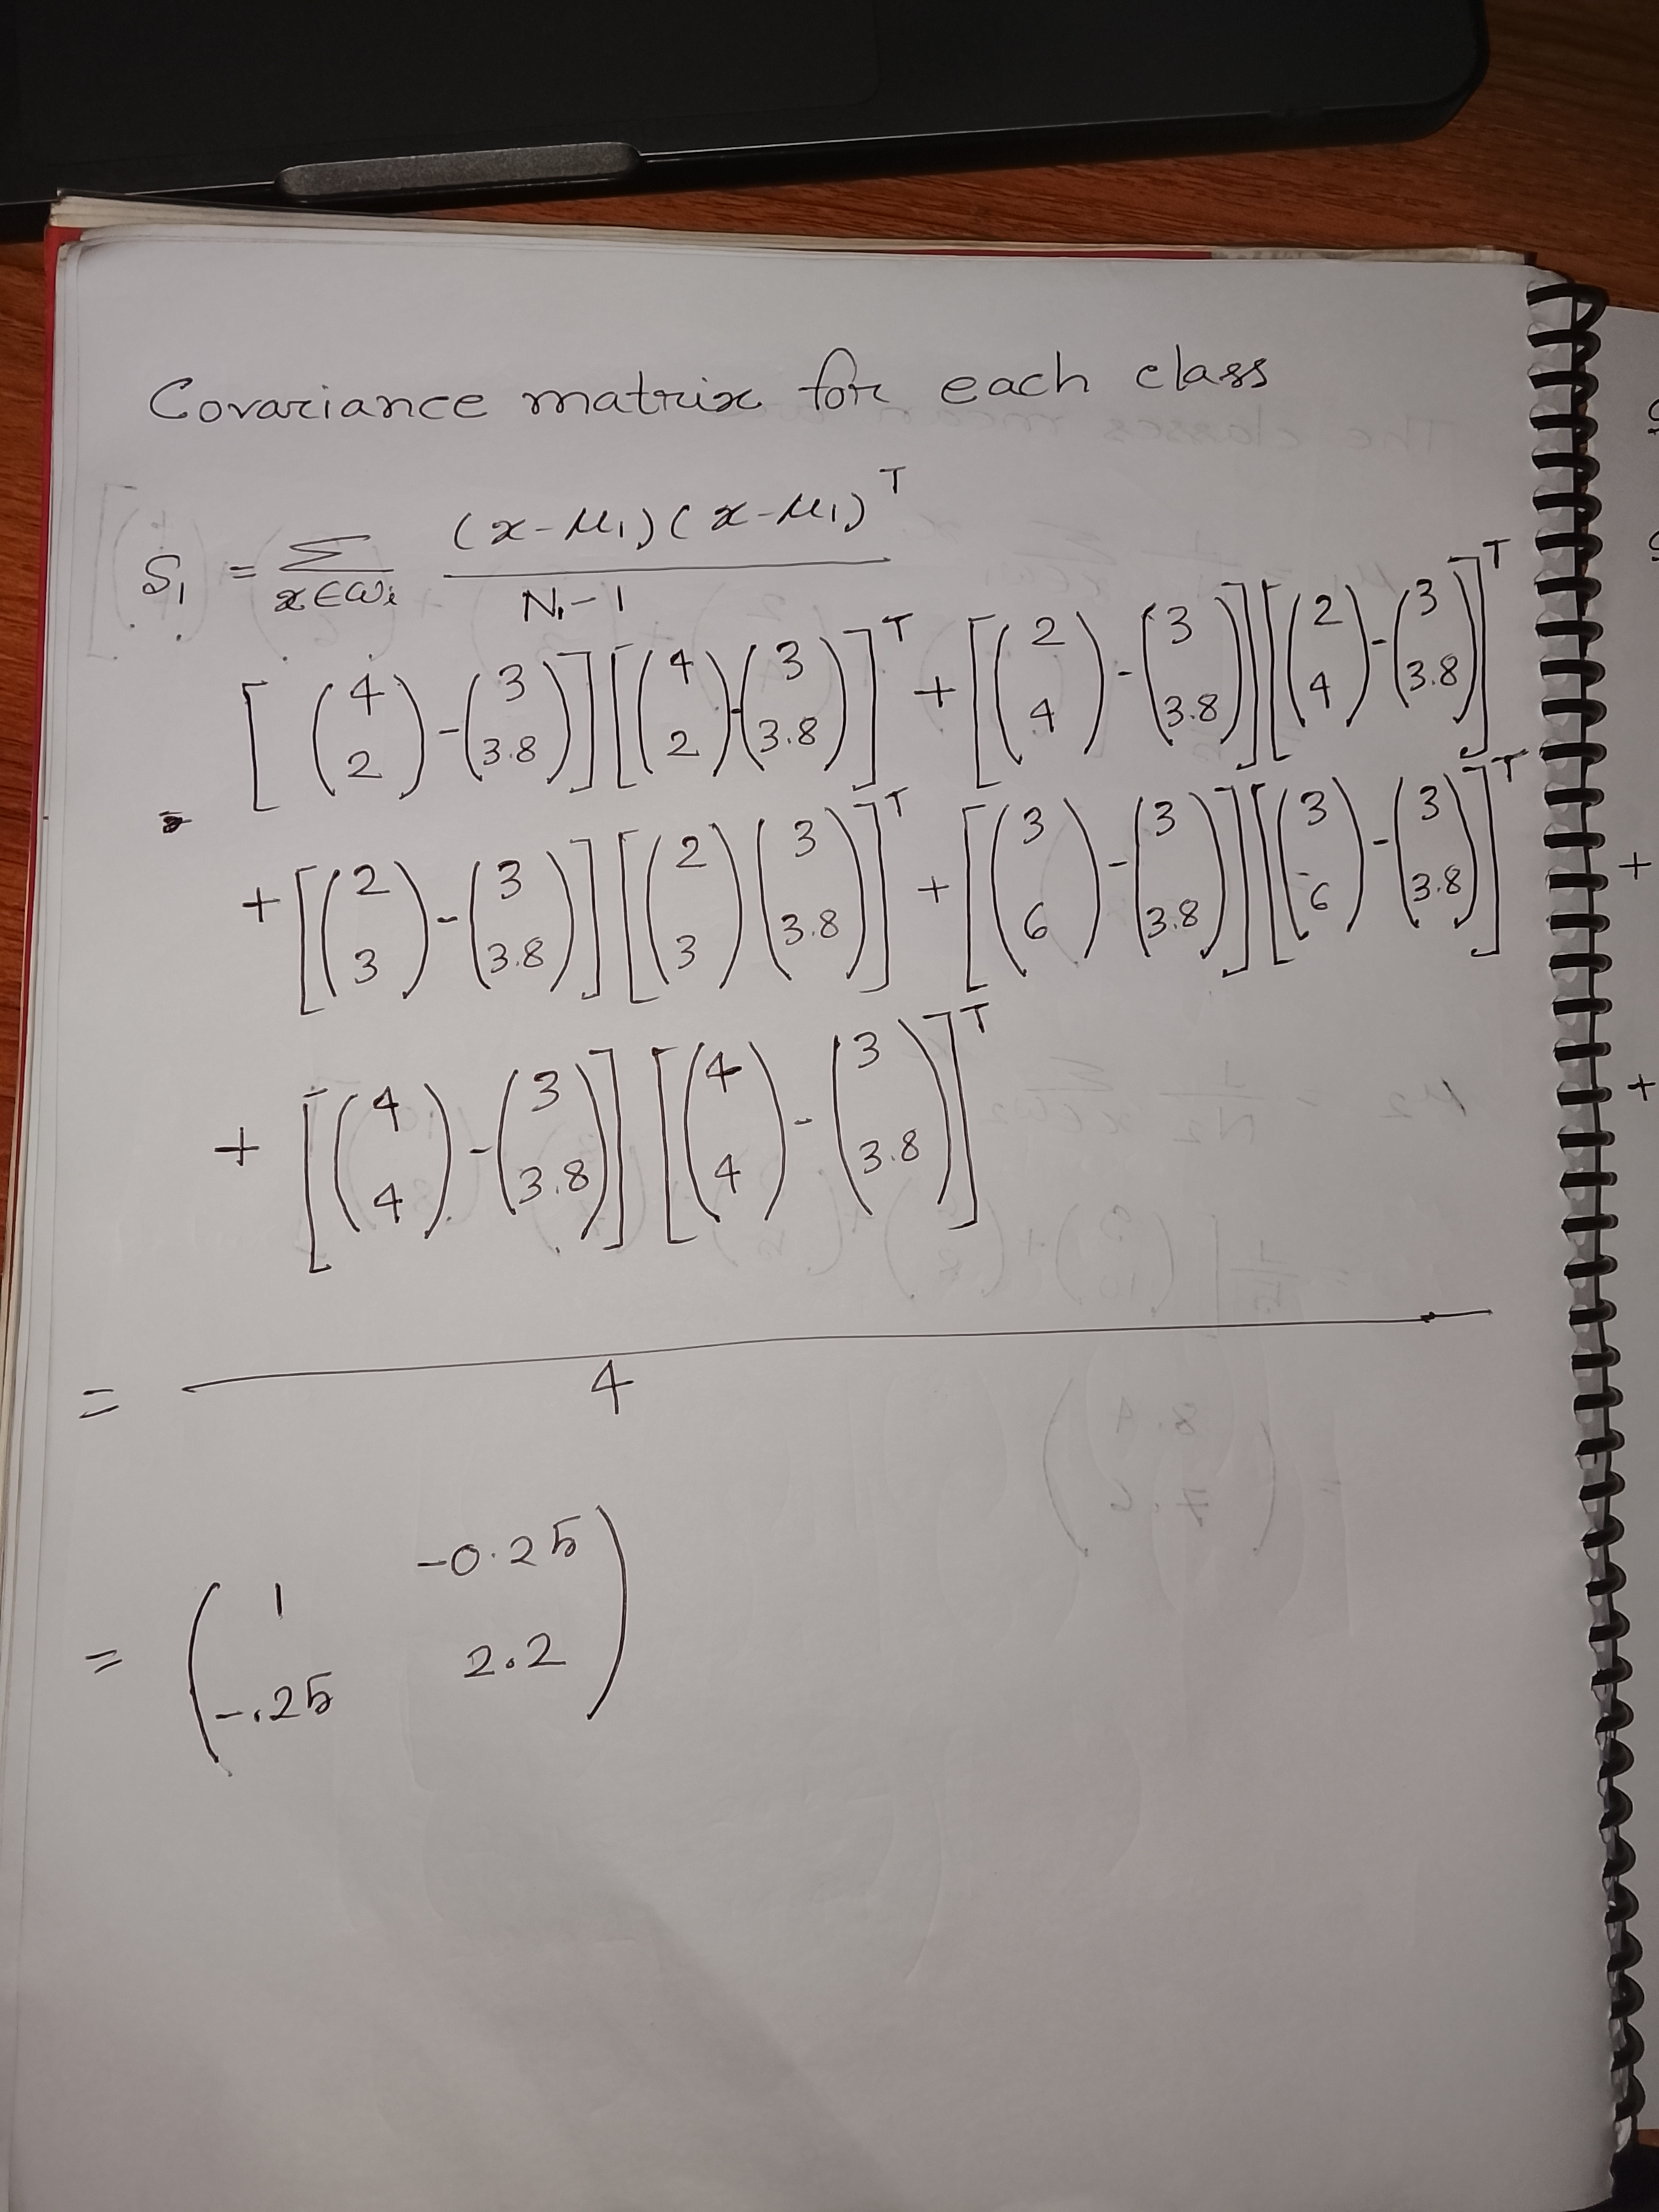 Covariance matrix for each class
S₁ = Σ x∈ωᵢ (x-μ₁)(x-μ₁)ᵀ / N₁-1
= [(4 2) - (3 3.8)][(4 2) - (3 3.8)]ᵀ + [(2 4) - (3 3.8)][(2 4) - (3 3.8)]ᵀ
+ [(2 3) - (3 3.8)][(2 3) (3 3.8)]ᵀ + [(3 6) - (3 3.8)][(3 6) - (3 3.8)]ᵀ
+ [(4 4) - (3 3.8)][(4 4) - (3 3.8)]ᵀ
= 4
= (1 -0.25
-.25 2.2)